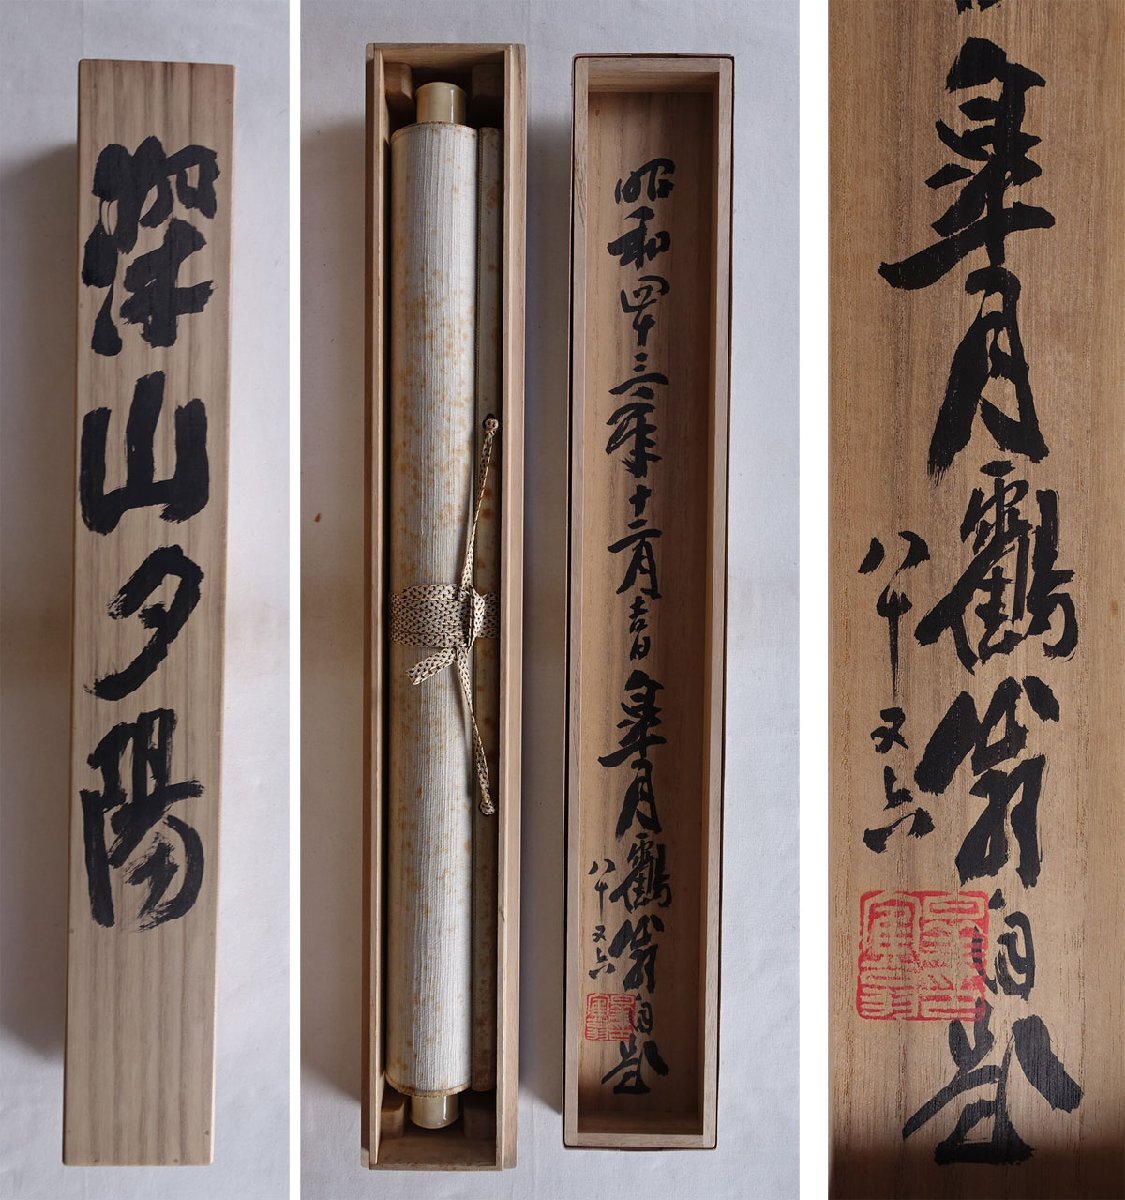 深山夕陽
昭和四十三年十二月吉日 皐月鶴翁自題
八十又六
皐月鶴翁自題
八十又六